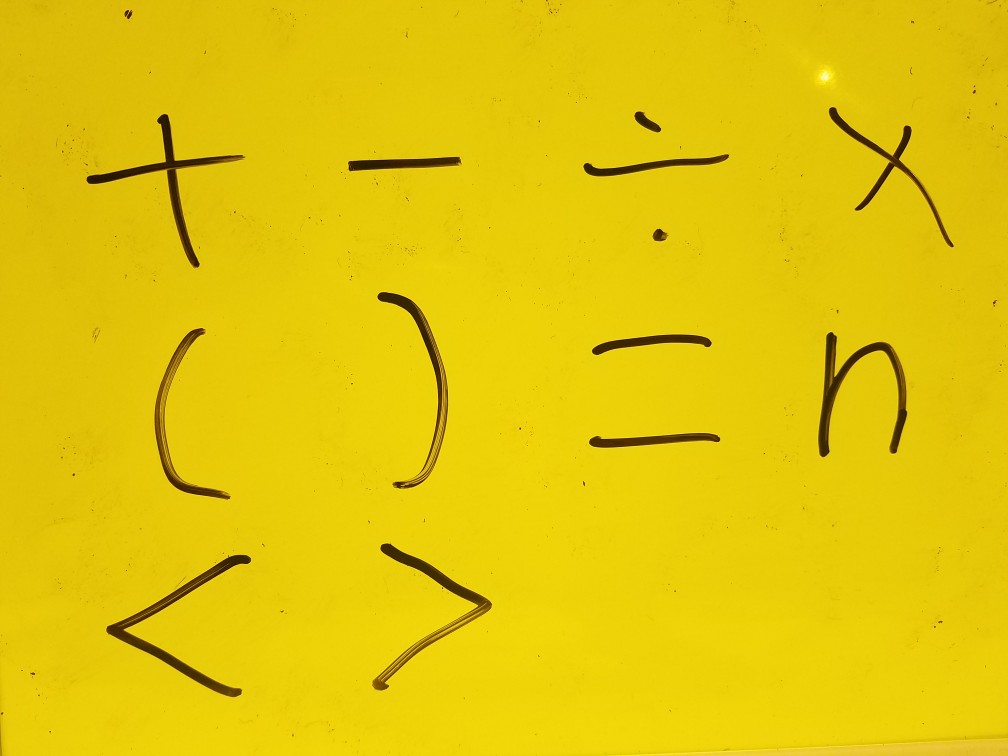 + - ÷ ×
( ) = n
< >